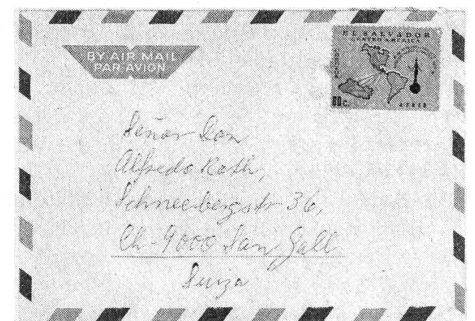 BY AIR MAIL
PAR AVION
EL SALVADOR
CENTRO AMERICA
80c.
AEREO
Señor Don
Alfredo Roth,
Schneebergstr 36,
Ch-9000 San Gall
Suiza